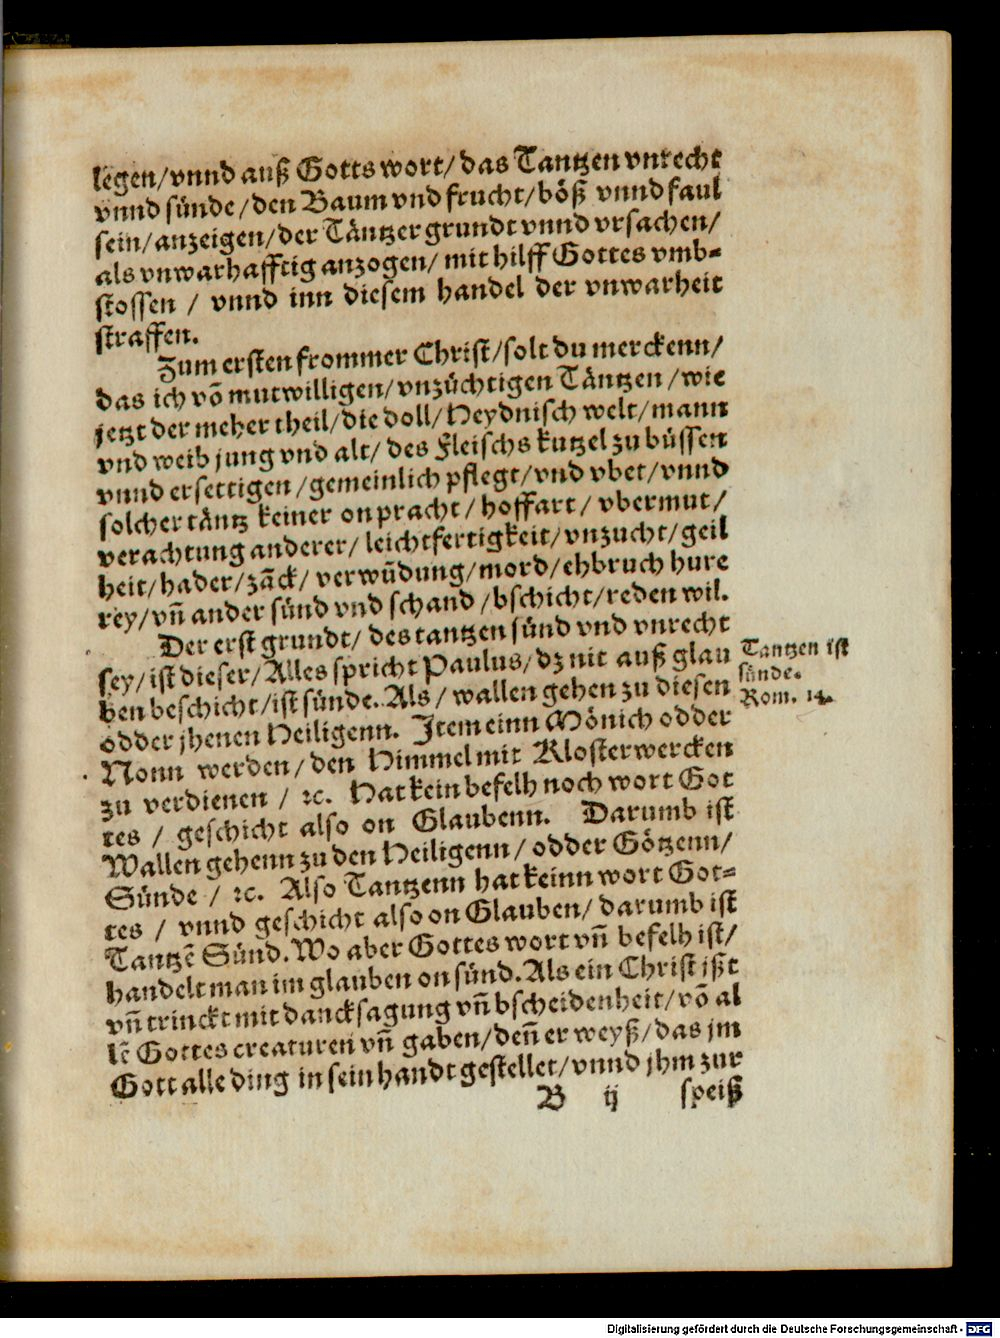 legen/vnnd auß Gotts wort/das Tantzen vnrecht
vnnd sünde/den Baum vnd frucht/böß vnnd faul
sein/anzeigen/der Täntzer grundt vnnd vrsachen/
als vnwarhafftig anzogen/mit hilff Gottes vmb-
stossen / vnnd inn diesem handel der vnwarheit
straffen.
Zum ersten frommer Christ/solt du merckenn/
das ich võ mutwilligen/vnzüchtigen Täntzen/wie
jetzt der meher theil/die doll/Heydnisch welt/mann
vnd weib jung vnd alt/des Fleischs kutzel zu büssen
vnnd ersettigen/gemeinlich pflegt/vnd vbet/vnnd
solcher täntz keiner on pracht/hoffart/vbermut/
verachtung anderer/leichtfertigkeit/vnzucht/geil
heit/hader/zäck/verwũdung/mord/ehbruch hure
rey/vñ ander sünd vnd schand/bschicht/reden wil.
Der erst grundt/des tantzen sünd vnd vnrecht
sey/ist dieser/Alles spricht Paulus/dz nit auß glau
ben beschicht/ist sünde. Als/wallen gehen zu diesen
odder jhenen Heiligenn. Item einn Mönich odder
Nonn werden/den Himmel mit Klosterwercken
zu verdienen / ꝛc. Hat kein befelh noch wort Got
tes / geschicht also on Glaubenn. Darumb ist
Wallen gehenn zu den Heiligenn/odder Götzenn/
Sünde / ꝛc. Also Tantzenn hat keinn wort Got-
tes / vnnd geschicht also on Glauben/darumb ist
Tantzẽ Sünd. Wo aber Gottes wort vñ befelh ist/
handelt man im glauben on sünd. Als ein Christ jßt
vñ trinckt mit dancksagung vñ bscheidenheit/võ al
lẽ Gottes creaturen vñ gaben/deñ er weyß/das jm
Gott alle ding in sein handt gestellet/vnnd jhm zur
B ij speiß
Tantzen ist
sünde.
Rom. 14.
Digitalisierung gefördert durch die Deutsche Forschungsgemeinschaft - DFG